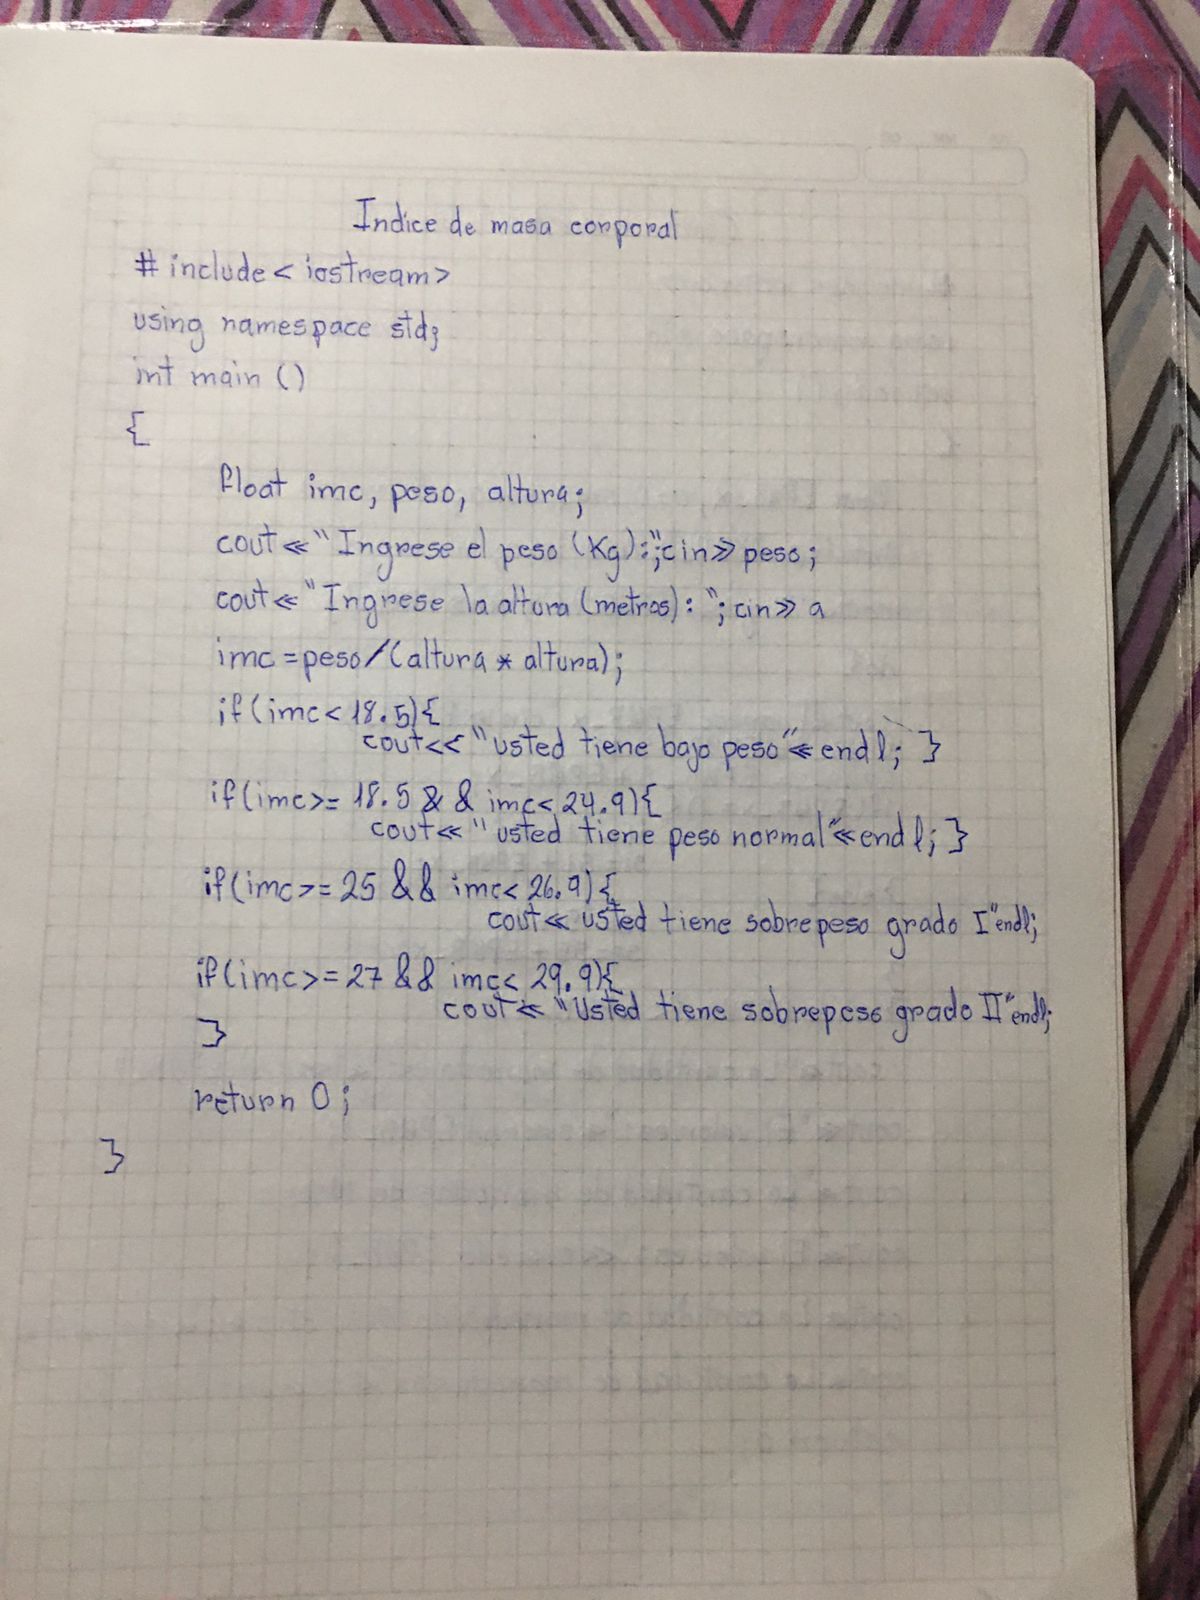 Indice de masa corporal
# include < iostream>
using namespace std;
int main ()
{
float imc, peso, altura;
cout << "Ingrese el peso (Kg):"; cin >> peso;
cout << "Ingrese la altura (metros): "; cin >> a
imc = peso/(altura * altura);
if (imc < 18.5){
cout << "usted tiene bajo peso" << endl; }
if (imc >= 18.5 && imc < 24.9){
cout << "usted tiene peso normal" << endl; }
if (imc >= 25 && imc < 26.9){
cout << usted tiene sobrepeso grado I" endl;
if (imc >= 27 && imc < 29.9){
cout << "Usted tiene sobrepeso grado II" endl;
}
return 0;
}